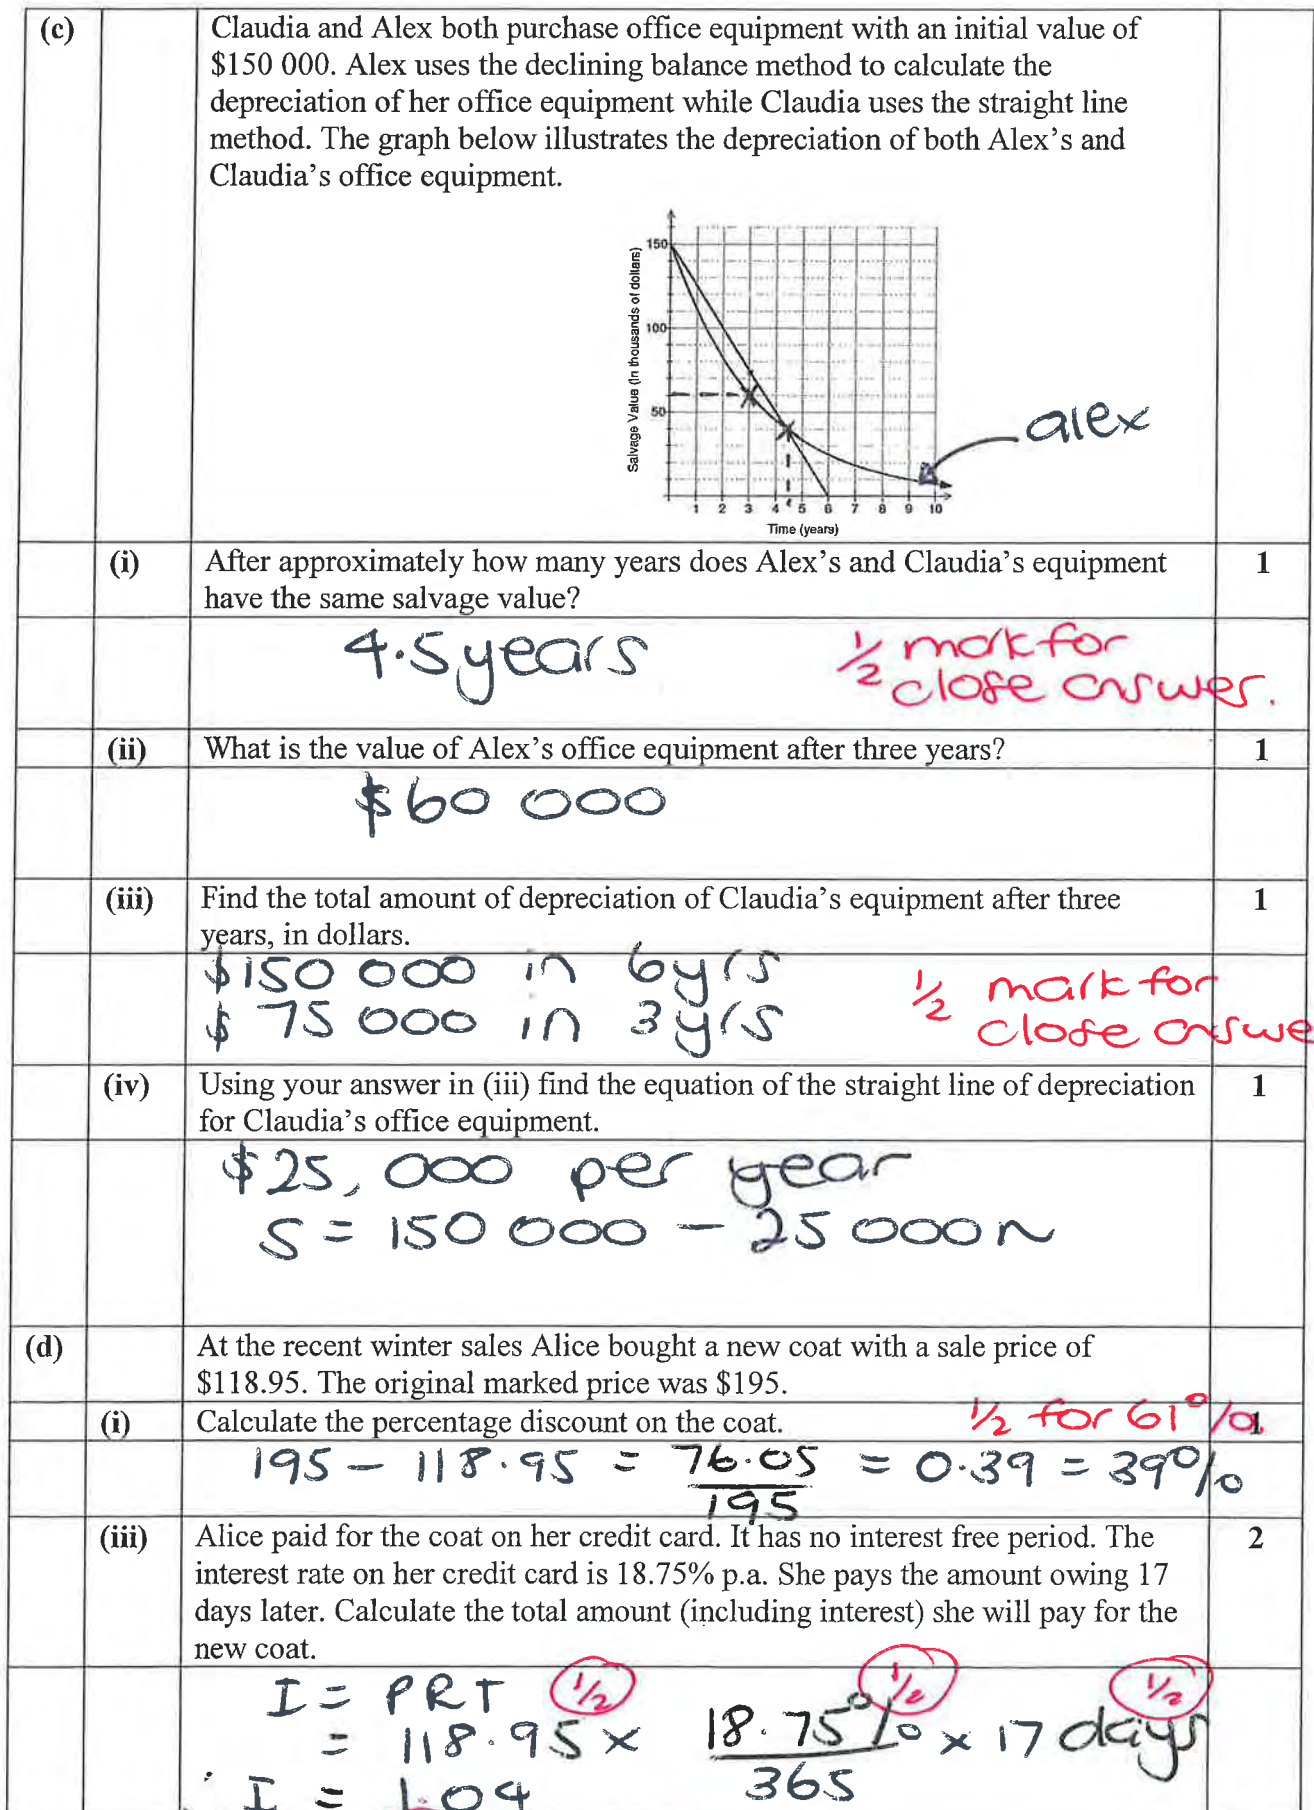 (c) Claudia and Alex both purchase office equipment with an initial value of
$150 000. Alex uses the declining balance method to calculate the
depreciation of her office equipment while Claudia uses the straight line
method. The graph below illustrates the depreciation of both Alex's and
Claudia's office equipment.
Salvage Value (in thousands of dollars)
150
100
50
alex
1 2 3 4 5 6 7 8 9 10
Time (years)
(i) After approximately how many years does Alex's and Claudia's equipment 1
have the same salvage value?
4.5 years
1/2 mark for
close answer.
(ii) What is the value of Alex's office equipment after three years? 1
$60 000
(iii) Find the total amount of depreciation of Claudia's equipment after three 1
years, in dollars.
$150 000 in 6yrs
$ 75 000 in 3yrs
1/2 mark for
close answe
(iv) Using your answer in (iii) find the equation of the straight line of depreciation 1
for Claudia's office equipment.
$25,000 per year
S = 150 000 - 25 000n
(d) At the recent winter sales Alice bought a new coat with a sale price of
$118.95. The original marked price was $195.
(i) Calculate the percentage discount on the coat. 1/2 for 61% 1
195 - 118.95 = 76.05/195 = 0.39 = 39%
(iii) Alice paid for the coat on her credit card. It has no interest free period. The 2
interest rate on her credit card is 18.75% p.a. She pays the amount owing 17
days later. Calculate the total amount (including interest) she will pay for the
new coat.
I = PRT 1/2 1/2 1/2
= 118.95 × 18.75%/365 × 17 days
I = 1.04